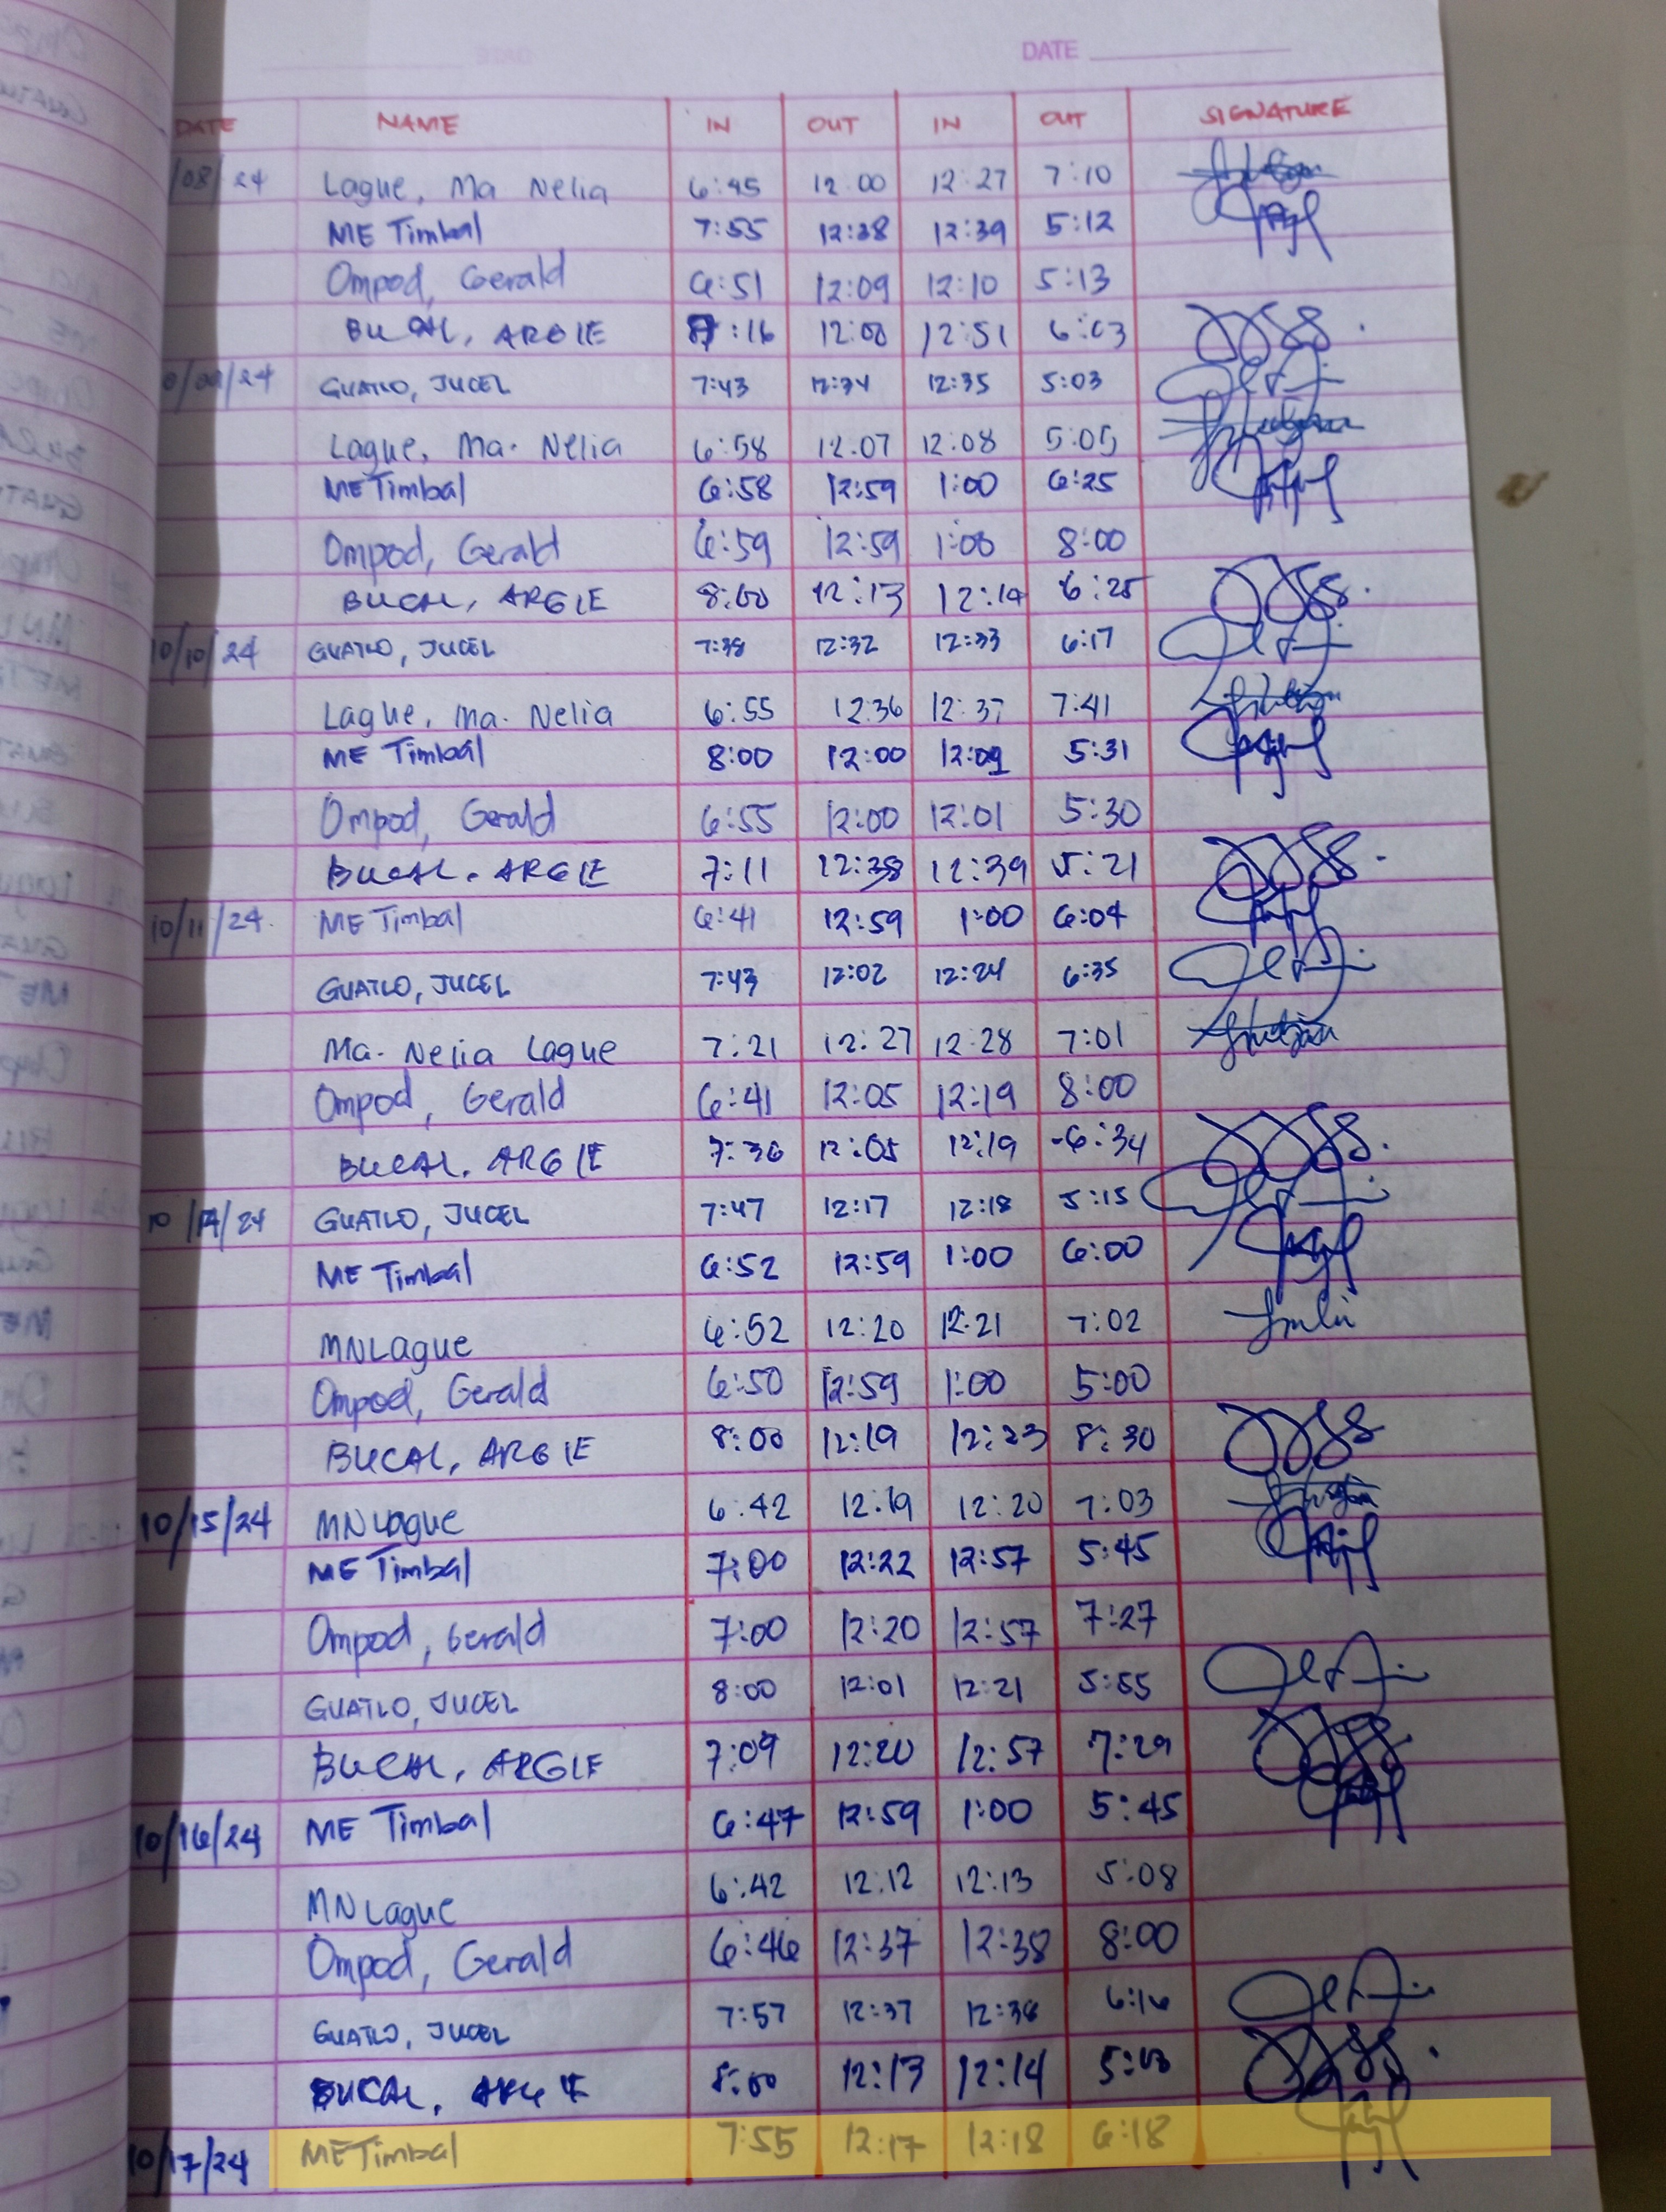 DATE
DATE NAME IN OUT IN OUT SIGNATURE
/08/24 Lague, Ma Nelia 6:45 12:00 12:27 7:10
ME Timbal 7:55 12:38 12:39 5:12
Ompod, Gerald 6:51 12:09 12:10 5:13
BUCAL, ARGIE :16 12:00 12:51 6:03
0/09/24 GUATLO, JUCEL 7:43 12:34 12:35 5:03
Lague, Ma. Nelia 6:58 12:07 12:08 5:05
ME Timbal 6:58 12:59 1:00 6:25
Ompod, Gerald 6:59 12:59 1:00 8:00
BUCAL, ARGIE 8:00 12:13 12:14 6:25
10/10/24 GUATLO, JUCEL 7:38 12:32 12:33 6:17
Lague, Ma. Nelia 6:55 12:36 12:37 7:41
ME Timbal 8:00 12:00 12:09 5:31
Ompod, Gerald 6:55 12:00 12:01 5:30
BUCAL, ARGIE 7:11 12:38 12:39 5:21
10/11/24 ME Timbal 6:41 12:59 1:00 6:04
GUATLO, JUCEL 7:43 12:02 12:24 6:35
Ma. Nelia Lague 7:21 12:27 12:28 7:01
Ompod, Gerald 6:41 12:05 12:19 8:00
BUCAL, ARGIE 7:36 12:05 12:19 6:34
10/14/24 GUATLO, JUCEL 7:47 12:17 12:18 5:15
ME Timbal 6:52 12:59 1:00 6:00
MNLague 6:52 12:20 12:21 7:02
Ompod, Gerald 6:50 12:59 1:00 5:00
BUCAL, ARGIE 8:00 12:19 12:23 8:30
10/15/24 MNLague 6:42 12:19 12:20 7:03
ME Timbal 7:00 12:22 12:57 5:45
Ompod, Gerald 7:00 12:20 12:57 7:27
GUATLO, JUCEL 8:00 12:01 12:21 5:55
BUCAL, ARGIE 7:09 12:20 12:57 7:29
10/16/24 ME Timbal 6:47 12:59 1:00 5:45
MNLague 6:42 12:12 12:13 5:08
Ompod, Gerald 6:46 12:37 12:38 8:00
GUATLO, JUCEL 7:57 12:37 12:38 6:16
BUCAL, ARGIE 8:00 12:13 12:14
10/17/24 ME Timbal 7:55 12:17 12:18 6:18